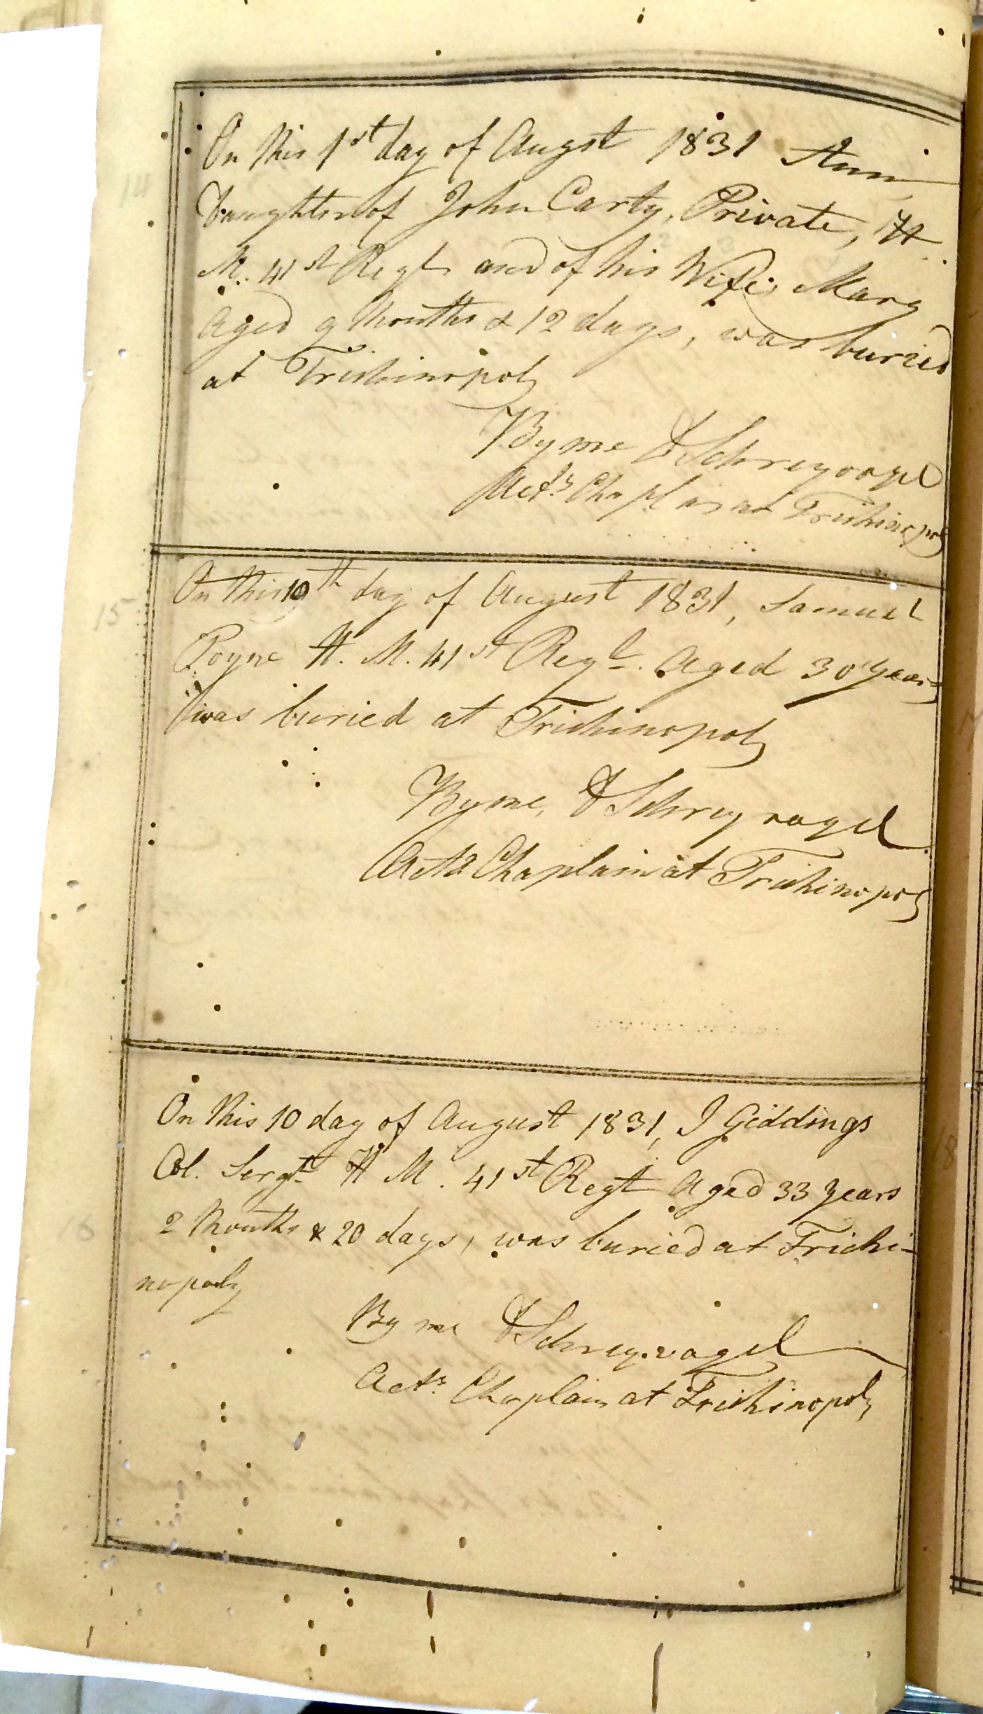 14
On this 1st day of Augst 1831 Ann
Daughter of John Carty, Private, H
M. 41st Regt and of his Wife Mary
Aged 9 Months & 12 days, was buried
at Trichinopoly
By me D Schreyvogel
Actg Chaplain at Trichinopoly
15
On this 10th day of August 1831, Samuel
H. M. 41st Regt. Aged 30 Years
was buried at Trichinopoly
By me, D Schreyvogel
Actg Chaplain at Trichinopoly
16
On this 10 day of August 1831, J Giddings
Col. Sergt H M. 41st Regt Aged 33 years
2 Months & 20 days, was buried at Trichi-
nopoly
By me D Schreyvogel
Actg Chaplain at Trichinopoly
18